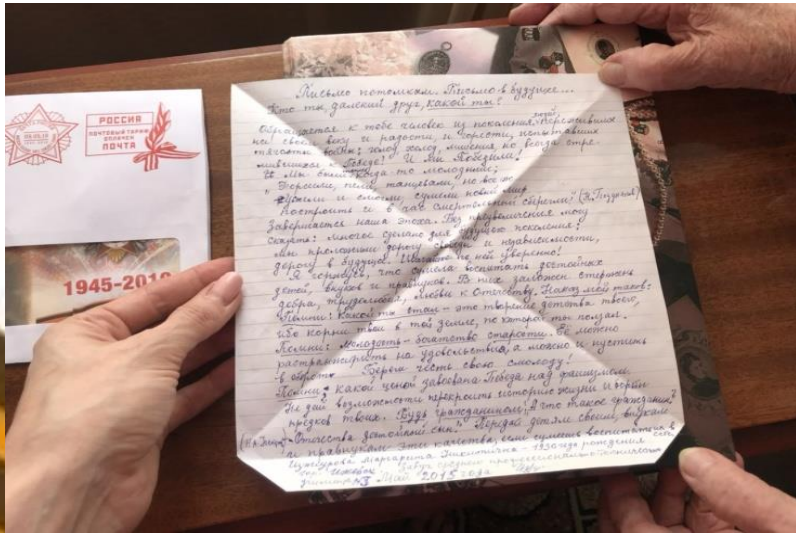 РОССИЯ
ПОЧТОВЫЙ ТАРИФ
ОПЛАЧЕН
ПОЧТА
1945-201
Письмо потомкам. Письмо в будущее...
Кто ты, далекий друг, какой ты?
Обращается к тебе человек из поколения людей, переживших
на своем веку и радости, и горести, испытавших
тяготы войны: голод, холод, лишения, но всегда стре-
мившихся к Победе! И мы Победили!
И мы были когда-то молодыми;
" Дружили, пели, танцевали, но все ж
и смогли, сумели новый мир
построить и в час смертельный сберегли!"
Завершается наша эпоха. Без преувеличения могу
сказать: многое сделано для будущего поколения:
Мы проложили дорогу свободы и независимости,
дорогу в будущее. Шагайте по ней уверенно!
Я горжусь, что сумела воспитать достойных
детей, внуков и правнуков. В них заложен стержень
добра, трудолюбия, любви к Отечеству. Наказ мой таков:
Помни: Какой ты стал - это творение детства твоего,
ибо корни твои в той земле, по которой ты ползал.
Помни: Молодость - богатство старости. Её можно
растранжирить на удовольствия, а можно и пустить
в оборот. Береги честь свою смолоду!
Помни: какой ценой завоевана Победа над фашизмом.
Не дай возможности перекроить историю жизни и борьбы
предков твоих. Будь гражданином! "А что такое гражданин?
Отечества достойный сын." Передай детям своим, внукам
и правнукам эти качества, если сумеешь воспитать их в себе.
Маргарита - 1930 года рождения
гор. Ижевск.
Май 2015 года